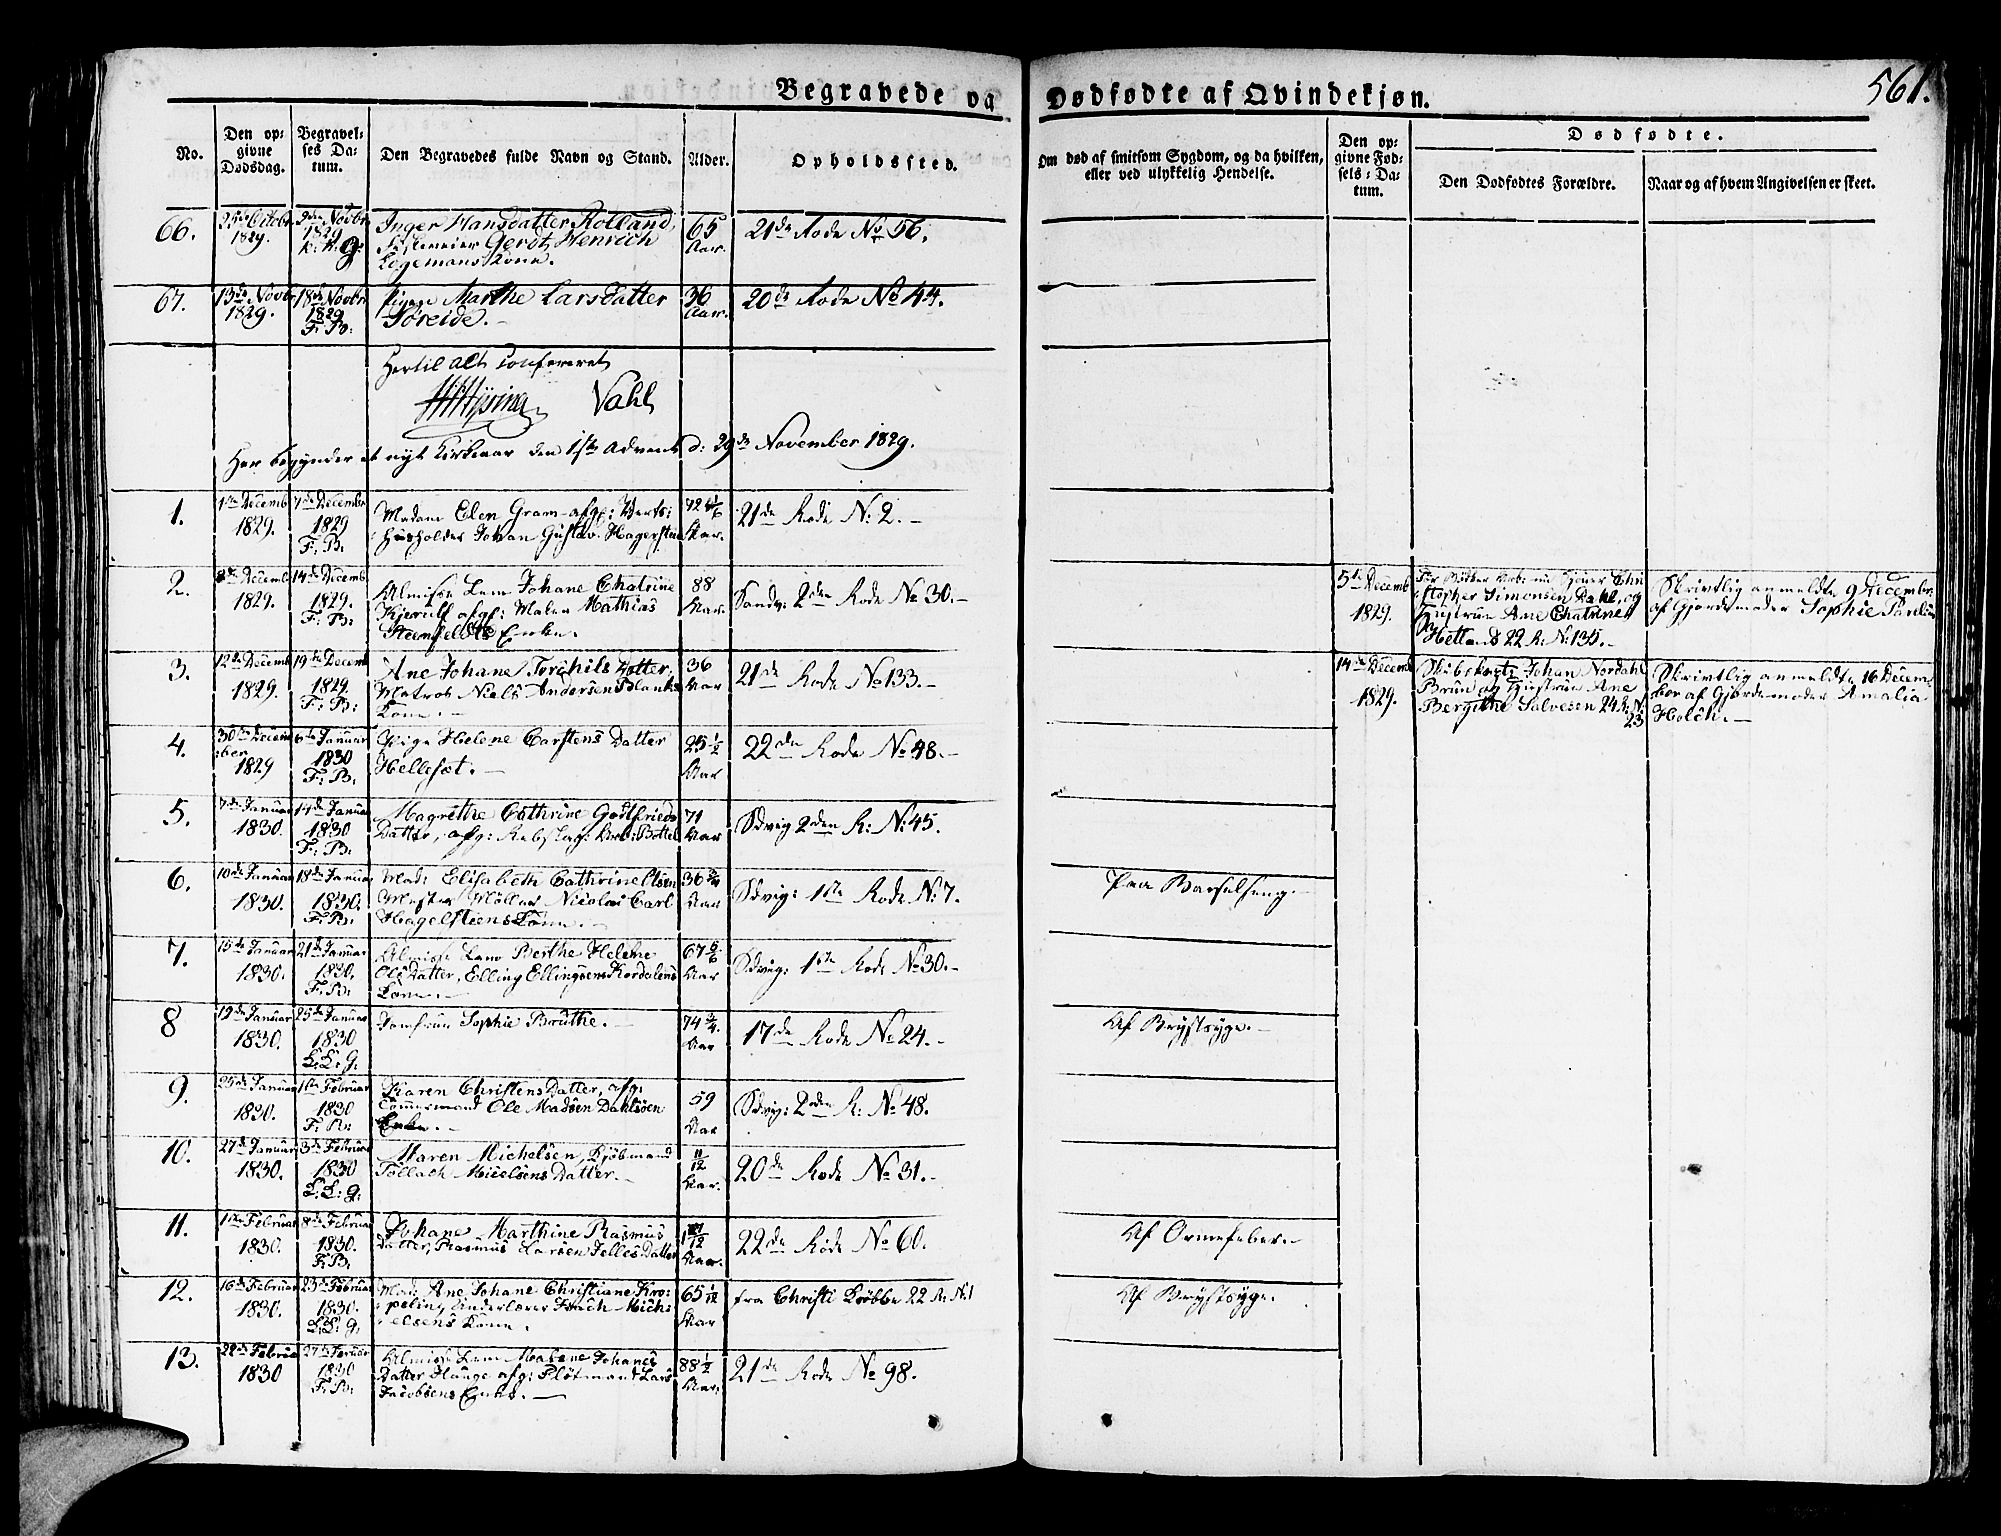 561.
Begravede og Dødfødte af Qvindekjøn.
No.
Den op-
givne
Dødsdag.
Begravel-
ses Da-
tum.
Den Begravedes fulde Navn og Stand.
Alder.
Opholdssted.
Om død af smitsom Sygdom, og da hvilken,
eller ved ulykkelig Hendelse.
Den op-
givne Fød-
sels-Da-
tum.
Dødfødte.
Den Dødfødtes Forældre.
Naar og af hvem Angivelsen er skeet.
66.
25de Octobr
1829.
2den Novbr
1829
K: K: G:
Inger Hansdatter Rolland,
Gerdt Henrich
Logemans Kone.
65
Aar.
21de Rode No 56.
67.
13de Novbr
1829.
18de Novbr
1829
F: B:
Pigen Marthe Larsdatter
Søreide.-
36
Aar.
20de Rode No 44.
Hertil alt confereret
Vahl
Her begynder et nyt Kirkeaar den 1ste Advent d: 29de November 1829.
1.
1ste Decemb
1829.
7de Decembr
1829
F: B:
Madam Elen Gram afg: Verts:
husholder Johan Gustav Hagerstein
72 1/6
Aar.
21de Rode N: 2.-
2.
8de Decemb
1829.
14de Decemb
1829.
F: B:
Almisse Lem Johane Chatrine
Kjerulf afg: Maler Mathias
Steenfeldts Enke.
88
Aar.
Sandv: 2den Rode No 30.-
5te Decemb
1829.
Christopher Simonsen Dahl, og
Hustrue Ane Chatrine
Hetland 22 R: N: 135.
Skrivtlig anmeldt 9 Decembr
af Gjordemoder Sophie
3.
12de Decemb
1829.
19de Decemb
1829.
F: B:
Ane Johane Torchils Datter,
Matros Niels Andersen Blanks
Kone.-
36
Aar
21de Rode No 133.-
14de Decemb
1829.
Johan Nordahl
Brun og Hustrue Ane
Bergithe Salvesen 24 R: N:
23
Skrivtlig anmeldt 16 Decem-
ber af Gjordemoder Amalia
Holch.-
4.
30te Decem
ber
1829
6te Januar
1830
F: B:
Pige Helene Carstens Datter
Hellesæt.-
25 1/2
Aar
22de Rode No 48.-
5.
7de Januar
1830.
14de Januar
1830
F: B:
Magrethe Cathrine Godtfrieds
Datter, afg:
71
Aar
Sdvig 2den R: N: 45.
6.
10de Januar
1830.
18de Januar
1830.
F: B:
Mad: Elisabeth Cathrine Olsen
Mester Møller Nicolai Carl
Hagelstiens Kone.-
36 3/4
Aar
Sdvig: 1ste Rode N: 7.
Paa Barselseng.-
7.
15de Januar
1830.
21de Januar
1830.
F: B:
Almisse Lem Berthe Helene
Ols Datter, Elling Ellingsens Kordalens
Kone.-
67 5/6
Aar
Sdvig: 1ste Rode No 30.-
8
19de Januar
1830.
25de Januar
1830
L: L: G.
Jomfrue Sophie Bruthe.-
74 3/4
Aar
17de Rode No 24.-
Af Brystsyge.-
9.
25de Januar
1830.
1ste Februar
1830
F: B:
Karen Christens Datter, afg:
Tømmermand Ole Madsen Dahlsøen
Enke.-
59
Aar
Sdvig: 2den R: No 48.
10.
27de Januar
1830.
3de Februar
1830
L: L: G.
Maren Michelsen, Kjøbmand
Tollach Micelsens Datter.-
11/12
Aar.
20de Rode No 31.-
11.
1ste Februar
1830.
8de Februar
1830.
F: B:
Johane Marthine Rasmus
Datter, Rasmus Larsen Jelles Datter
1 11/12
Aar.
22de Rode No 60.
Af Ormefeber.-
12.
16de Februar
1830.
23de Februar
1830.
L: L: G.
Mad: Ane Johane Christiane Kro-
peling Mich-
elsens Kone.
65 1/12
Aar
fra Christi Krybbe 22 R: N: 1
Af Brystsyge.
13.
22de Februar
1830
27de Februar
1830
F: B:
Almisse Lem Malene Johanes
Datter Hauge afg: Lars
Jacobsens Enke.-
88 1/2
Aar.
21de Rode No 98.